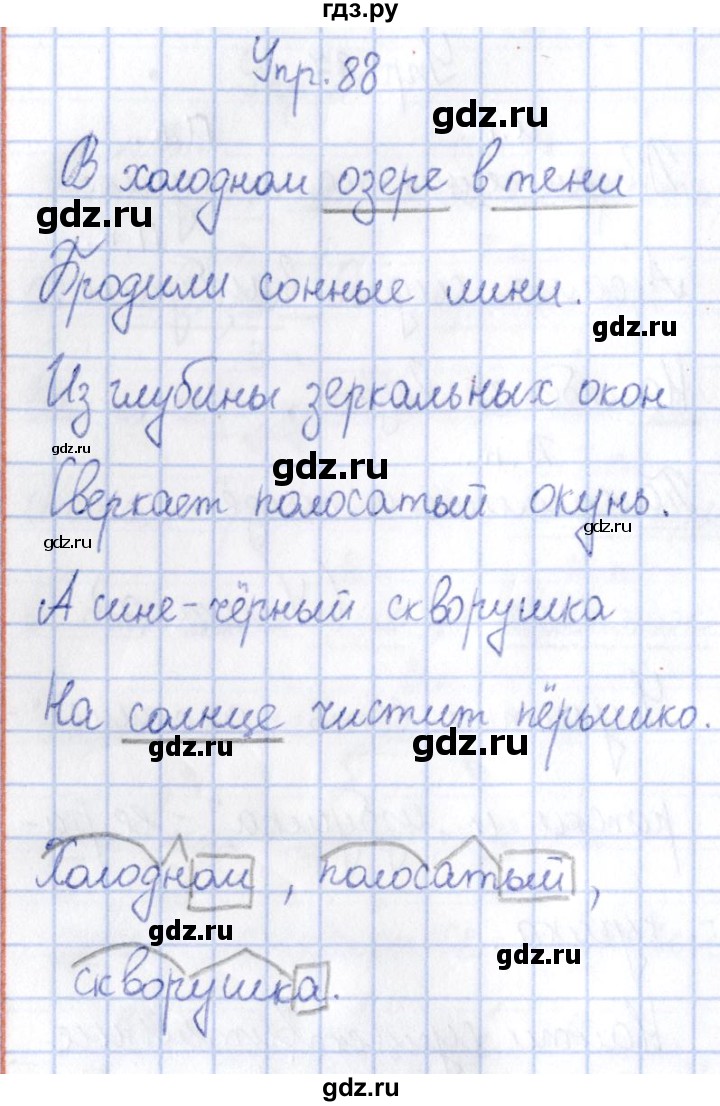 гдз.ру
Упр. 88
gdz.ru
В холодном озере в тени
gdz.ru
Бродили сонные лини.
gdz.ru
Из глубины зеркальных окон
gdz.ru
gdz.ru
Сверкает полосатый окунь.
gdz.ru
gdz.ru
А сине-чёрный скворушка
На солнце чистит пёрышко.
gdz.ru
gdz.ru
Холодном, полосатый,
gdz.ru
gdz.ru
скворушка.
gdz.ru